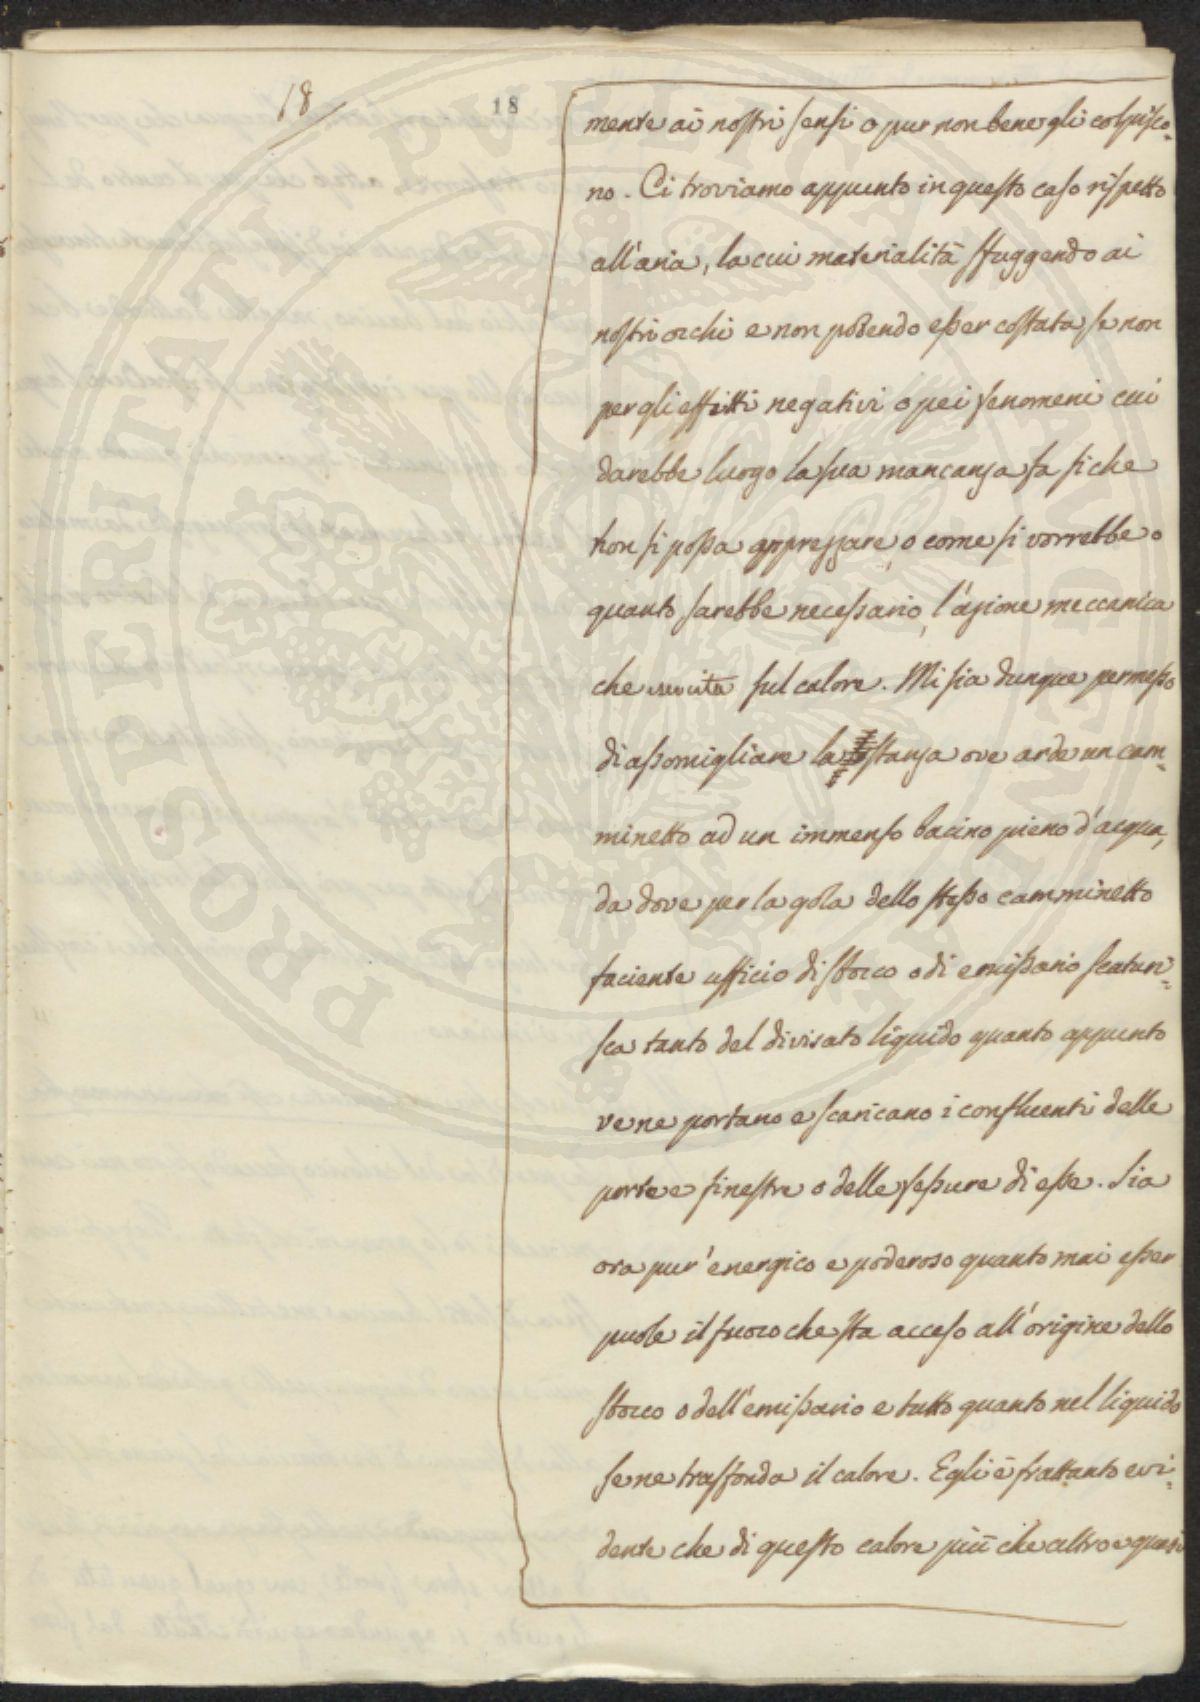 18
18
mente ai nostri sensi o pur non bene gli colpisco=
no. Ci troviamo appunto in questo caso rispetto
all'aria, la cui materialità sfuggendo ai
nostri occhi e non potendo esser costata se non
per gli effetti negativi o pei fenomeni cui
darebbe luogo la sua mancanza fa si che
non si possa apprezzare, o come si vorrebbe o
quanto sarebbe necessario, l'azione meccanica
che esercita sul calore. Mi sia dunque permesso
di assomigliare la stanza ove arde un cam=
minetto ad un immenso bacino pieno d'acqua,
da dove per la gola dello stesso camminetto
faciente ufficio di sbocco o di emissario scaturi=
sca tanto del divisato liquido quanto appunto
ve ne portano e scaricano i confluenti delle
porte e finestre o delle fessure di esse. Sia
ora pur' energico e poderoso quanto mai esser
puole il fuoco che sta acceso all'origine dello
sbocco o dell'emissario e tutto quanto nel liquido
se ne trasfonda il calore. Egli è frattanto evi=
dente che di questo calore più che altro e quasi
PROSPERITATI PUBLICAE AUGENDAE